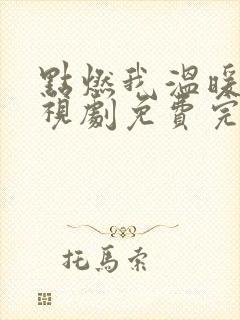 點燃我 溫暖
視劇免費完
托馬索